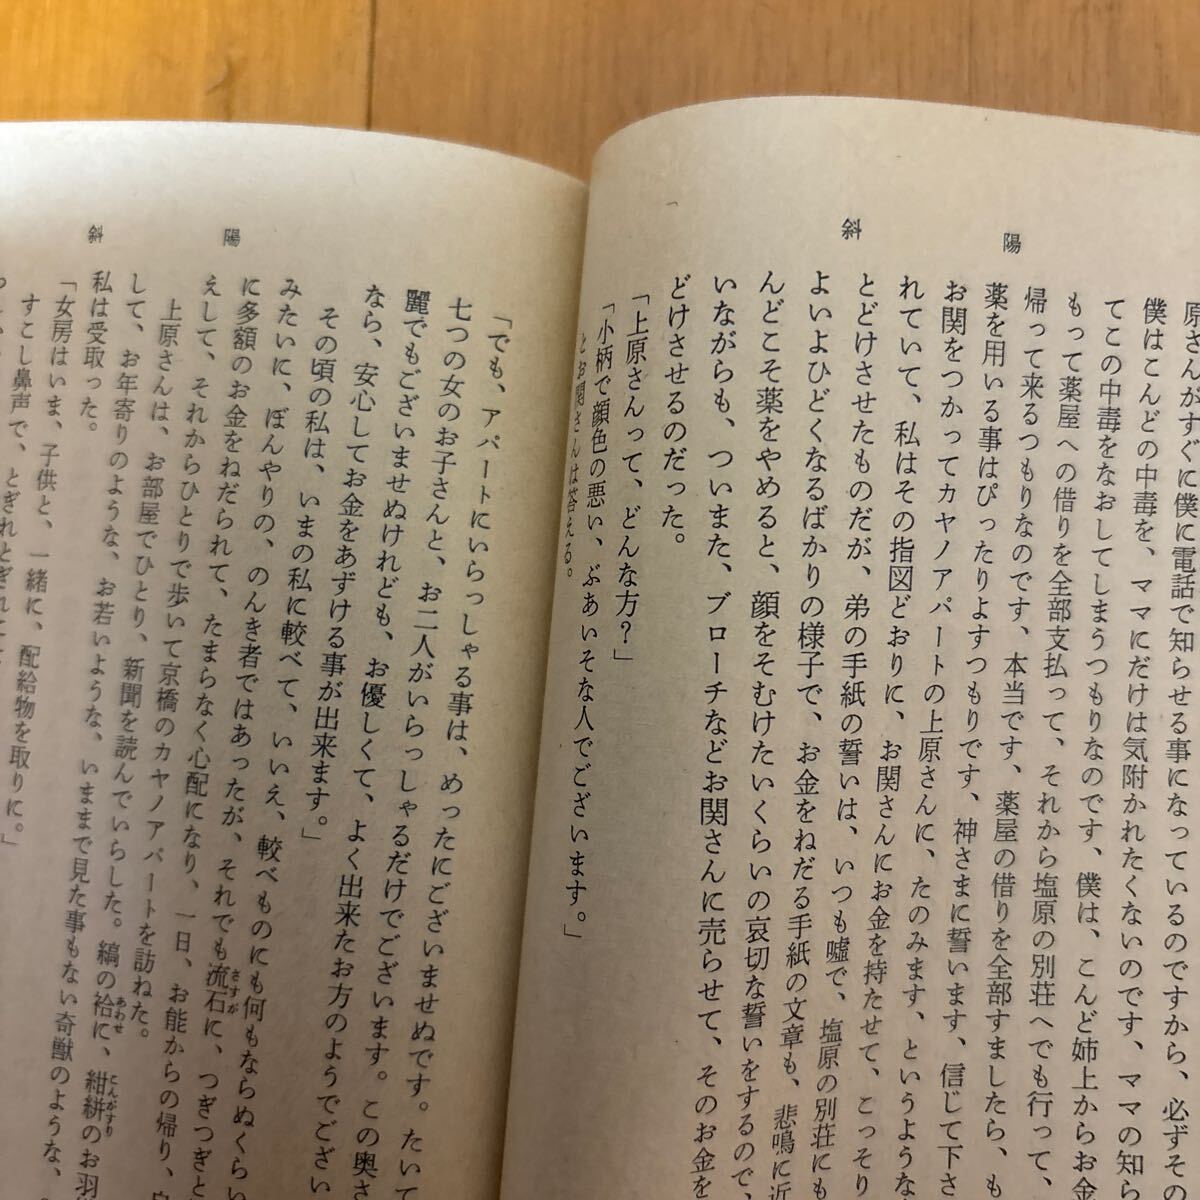 斜陽
原さんがすぐに僕に電話で知らせる事になっているのですから、必ずその
僕はこんどの中毒を、ママにだけは気附かれたくないのです、ママの知ら
てこの中毒をなおしてしまうつもりなのです、僕は、こんど姉上からお金
もって薬屋への借りを全部支払って、それから塩原の別荘へでも行って、
帰って来るつもりなのです、本当です、薬屋の借りを全部すましたら、も
薬を用いる事はぴったりよすつもりです、神さまに誓います、信じて下さ
お関をつかってカヤノアパートの上原さんに、たのみます、というような
れていて、私はその指図どおりに、お関さんにお金を持たせて、こっそり
とどけさせたものだが、弟の手紙の誓いは、いつも嘘で、塩原の別荘にも
よいよひどくなるばかりの様子で、お金をねだる手紙の文章も、悲鳴に近
んどこそ薬をやめると、顔をそむけたいくらいの哀切な誓いをするので、
いながらも、ついまた、ブローチなどお関さんに売らせて、そのお金を
どけさせるのだった。
「上原さんって、どんな方?」
「小柄で顔色の悪い、ぶあいそな人でございます。」
とお関さんは答える。
斜陽
「でも、アパートにいらっしゃる事は、めったにございませぬです。たいて
七つの女のお子さんと、お二人がいらっしゃるだけでございます。この奥さ
麗でもございませぬけれども、お優しくて、よく出来たお方のようでござい
なら、安心してお金をあずける事が出来ます。」
その頃の私は、いまの私に較べて、いいえ、較べものにも何もならぬくらい
みたいに、ぼんやりの、のんき者ではあったが、それでも流石に、つぎつぎと
さすが
に多額のお金をねだられて、たまらなく心配になり、一日、お能からの帰り、
えして、それからひとりで歩いて京橋のカヤノアパートを訪ねた。
上原さんは、お部屋でひとり、新聞を読んでいらした。縞の袷に、紺絣のお羽
あわせ
こんがすり
して、お年寄りのような、お若いような、いままで見た事もない奇獣のような、
私は受取った。
「女房はいま、子供と、一緒に、配給物を取りに。」
すこし鼻声で、とぎれとぎれに